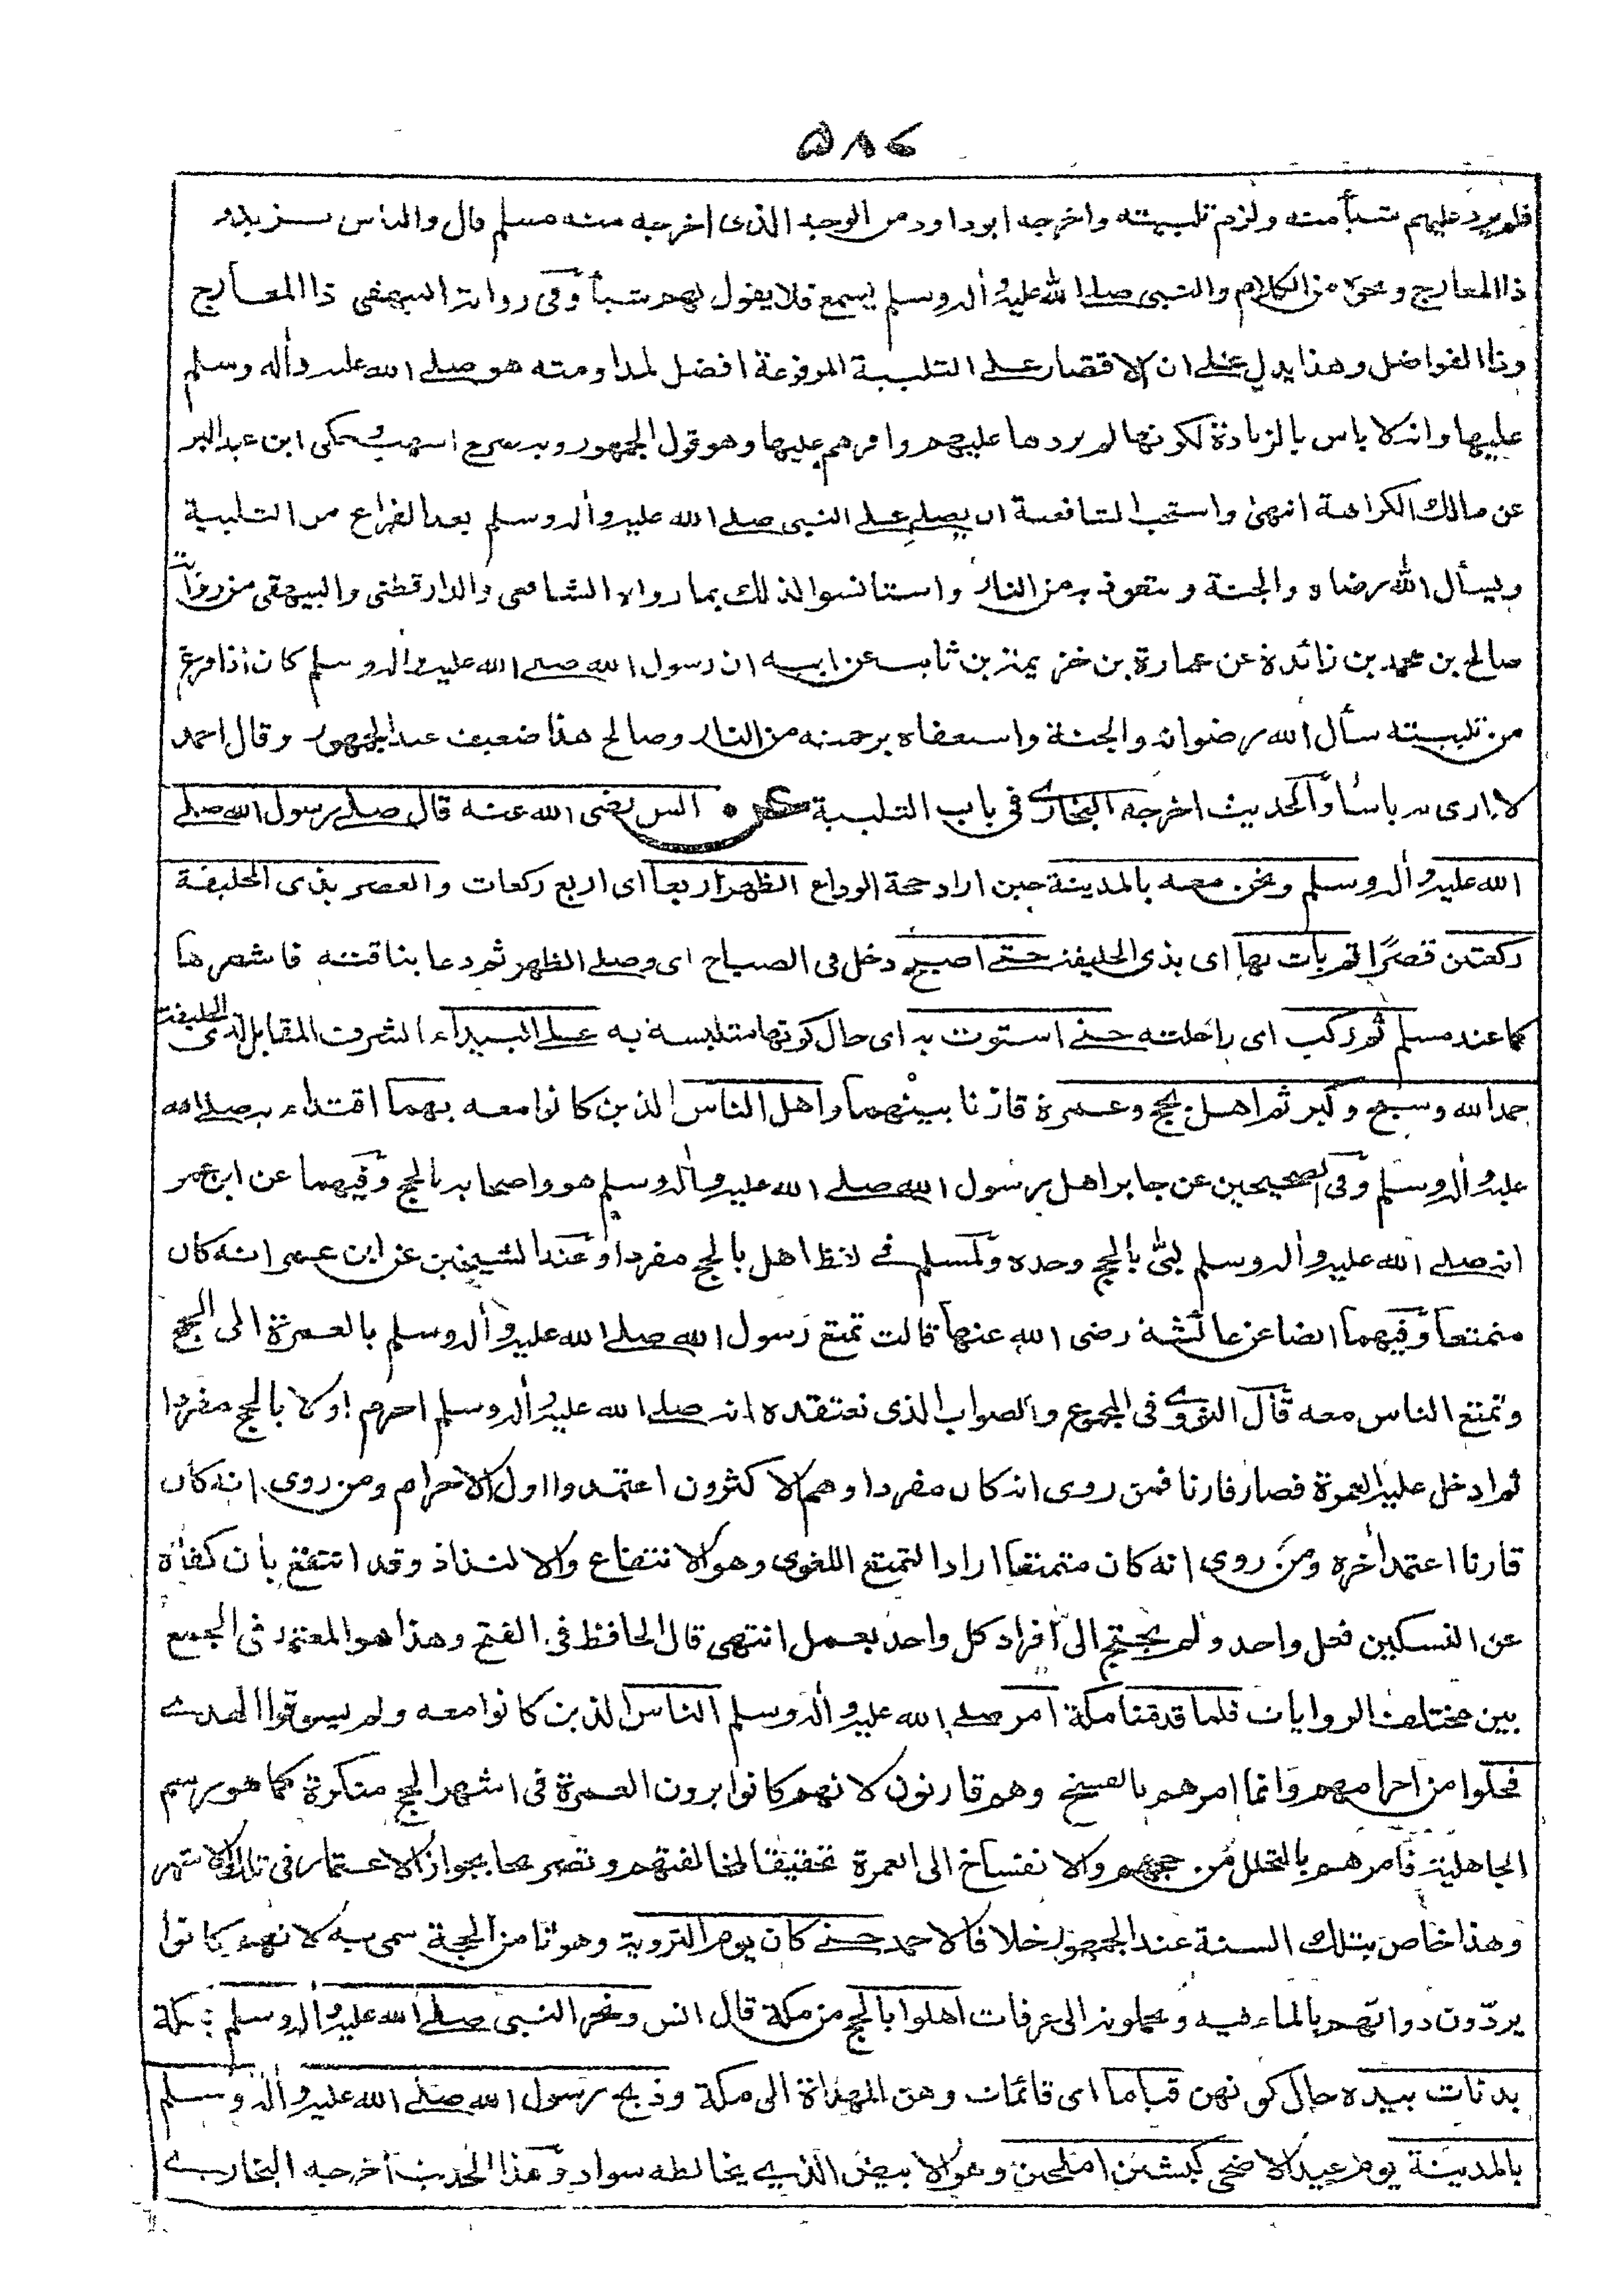 ٥٨٦
فلم يرد عليهم شيأ منه ولزم تلبيته واخرجه ابو داود من الوجه الذى اخرجه منه مسلم قال والناس يزيدون
ذا المعارج ونحوه من الكلام والنبى صلے الله عليه وأله وسلم يسمع فلا يقول لهم شيأ وفى رواية البيهقى ذا المعارج
وذا الفواضل وهذا يدل علے ان الاقتصار علے التلبية المرفوعة افضل لمداومته هو صلے الله عليه وأله وسلم
عليها وانه لا باس بالزيادة لكونه لم يردها عليهم واقرهم عليها وهو قول الجمهور وبه صرح اشهب وحكى ابن عبد البر
عن مالك الكراهة انتهى واستحب الشافعية ان يصلے علے النبى صلے الله عليه وأله وسلم بعد الفراغ من التلبية
ويسأل الله رضاه والجنة ويتعوذ به من النار واستانسوا لذلك بما رواه الشافعى والدارقطنى والبيهقى من رواية
صالح بن محمد بن زائدة عن عمارة بن خزيمة بن ثابت عن ابيه ان رسول الله صلے الله عليه وأله وسلم كان اذا فرغ
من تلبيته سأل الله رضوانه والجنة واستعفاه برحمته من النار وصالح هذا ضعيف عند الجمهور وقال احمد
لا ارى به باسًا والحديث اخرجه البخارى فى باب التلبية عن انس رضى الله عنه قال صلے رسول الله صلے
الله عليه وأله وسلم ونحن معه بالمدينة حين اراد حجة الوداع الظهر اربعا اى اربع ركعات والعصر بذى الحليفة
ركعتين قصرًا ثم بات بها اى بذى الحليفة حتے اصبح دخل فى الصباح اى وصلے الظهر ثم دعا بناقته فاشعرها
كما عند مسلم ثم ركب اى راحلته حتے استوت به اى حال كونها متلبسة به علے البيداء الشرف المقابل لذى الحليفة
حمد الله وسبح وكبر ثم اهل بحج وعمرة قارنا بينهما واهل الناس الذين كانوا معه بهما اقتداء به صلے الله
عليه وأله وسلم وفى الصحيحين عن جابر اهل رسول الله صلے الله عليه وأله وسلم هو واصحابه بالحج وفيهما عن ابن عمر
انه صلے الله عليه وأله وسلم لبّى بالحج وحده ولمسلم فے لفظ اهل بالحج مفردا وعند الشيخين عن ابن عمر انه كان
متمتعا وفيهما ايضا عن عائشة رضى الله عنها قالت تمتع رسول الله صلے الله عليه وأله وسلم بالعمرة الى الحج
وتمتع الناس معه قال النووى فى المجموع والصواب الذى نعتقده انه صلے الله عليه وأله وسلم احرم اولا بالحج مفردا
ثم ادخل عليه العمرة فصار قارنا فمن روى انه كان مفردا وهم الاكثرون اعتمدوا اول الاحرام ومن روى انه كان
قارنا اعتمد أخره ومن روى انه كان متمتعا اراد التمتع اللغوى وهو الانتفاع والالتذاذ وقد انتفع بأن كفاه
عن النسكين فعل واحد ولم يحتج الى افراد كل واحد بعمل انتهى قال الحافظ فى الفتح وهذا هو المعتمد فى الجمع
بين مختلف الروايات فلما قدمنا مكة امر صلے الله عليه وأله وسلم الناس الذين كانوا معه ولم يسوقوا الهدے
فحلوا من احرامهم وانما امرهم بالفسخ وهم قارنون لانهم كانوا يرون العمرة فى اشهر الحج منكرة كما هو رسم
الجاهلية فامرهم بالتحلل من حجهم والانفساخ الى العمرة تحقيقا لمخالفتهم وتصريحا بجواز الاعتمار فى تلك الاشهر
وهذا خاص بتلك السنة عند الجمهور خلافا لاحمد حتے كان يوم التروية وهو ثامن الحجة سمى به لانهم كانوا
يروّون دوابهم بالماء فيه ويحملونه الى عرفات اهلوا بالحج من مكة قال انس ونحر النبى صلے الله عليه وأله وسلم بمكة
بدنات بيده حال كونهن قياما اى قائمات وهن المهداة الى مكة وذبح رسول الله صلے الله عليه وأله وسلم
بالمدينة يوم عيد الاضحى كبشين املحين وهو الابيض الذى يخالطه سواد وهذا الحديث أخرجه البخارے